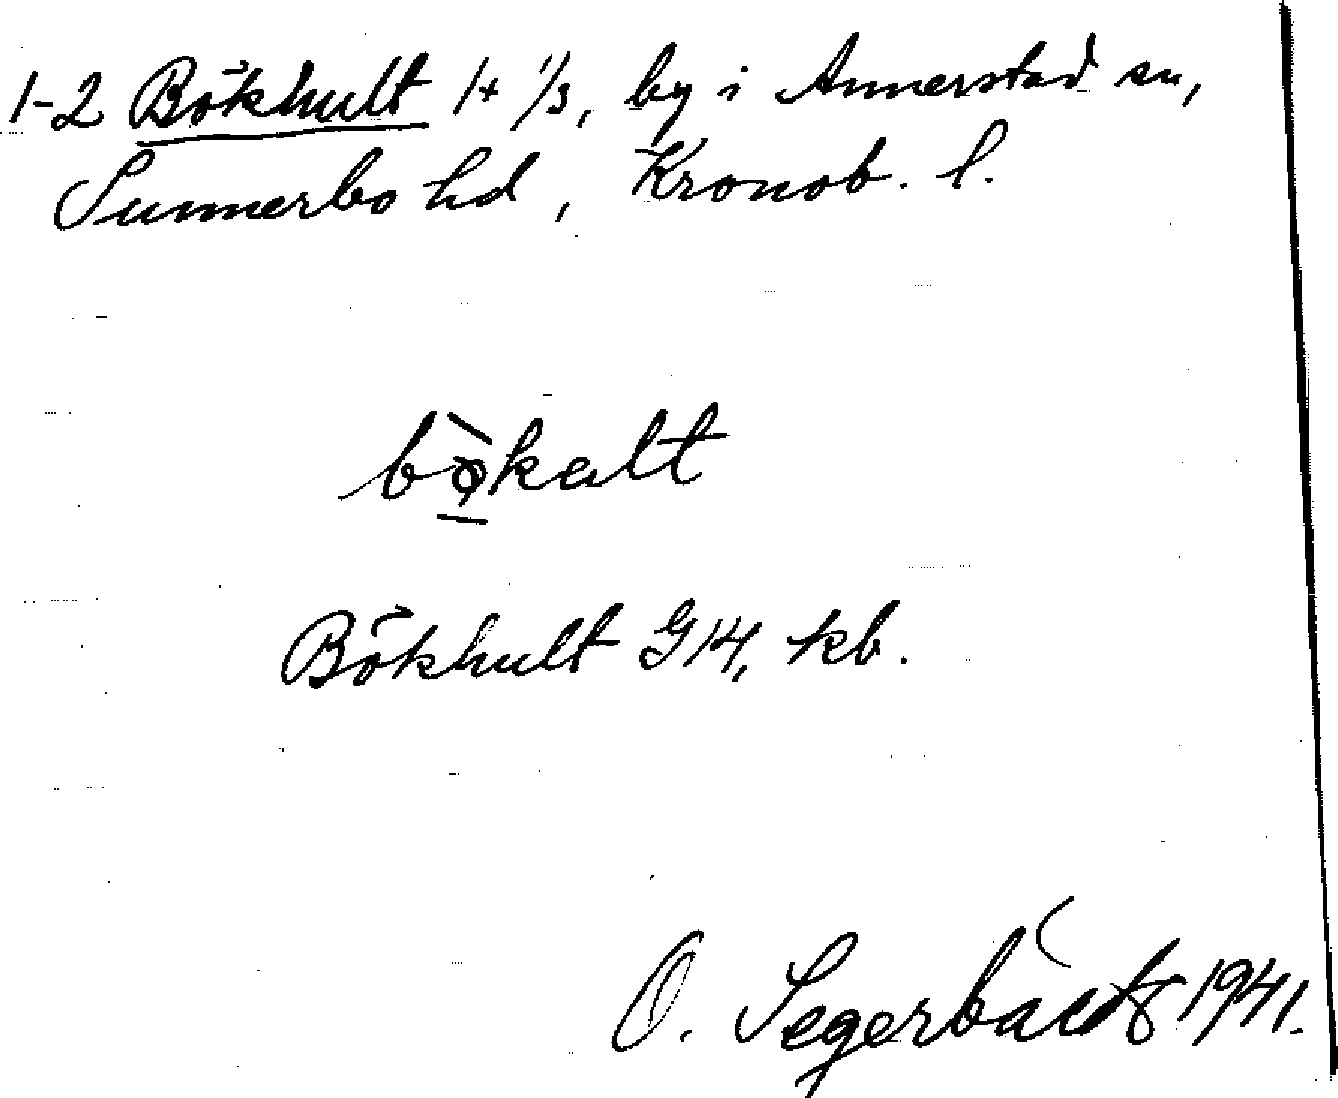 1-2 Bökhult 1+ 1/3, by i Annerstad sn,
Sunnerbo hd, Kronob. l.
bø̀kalt
Bökhult G 14, kb.
O. Segerbäck 1941.